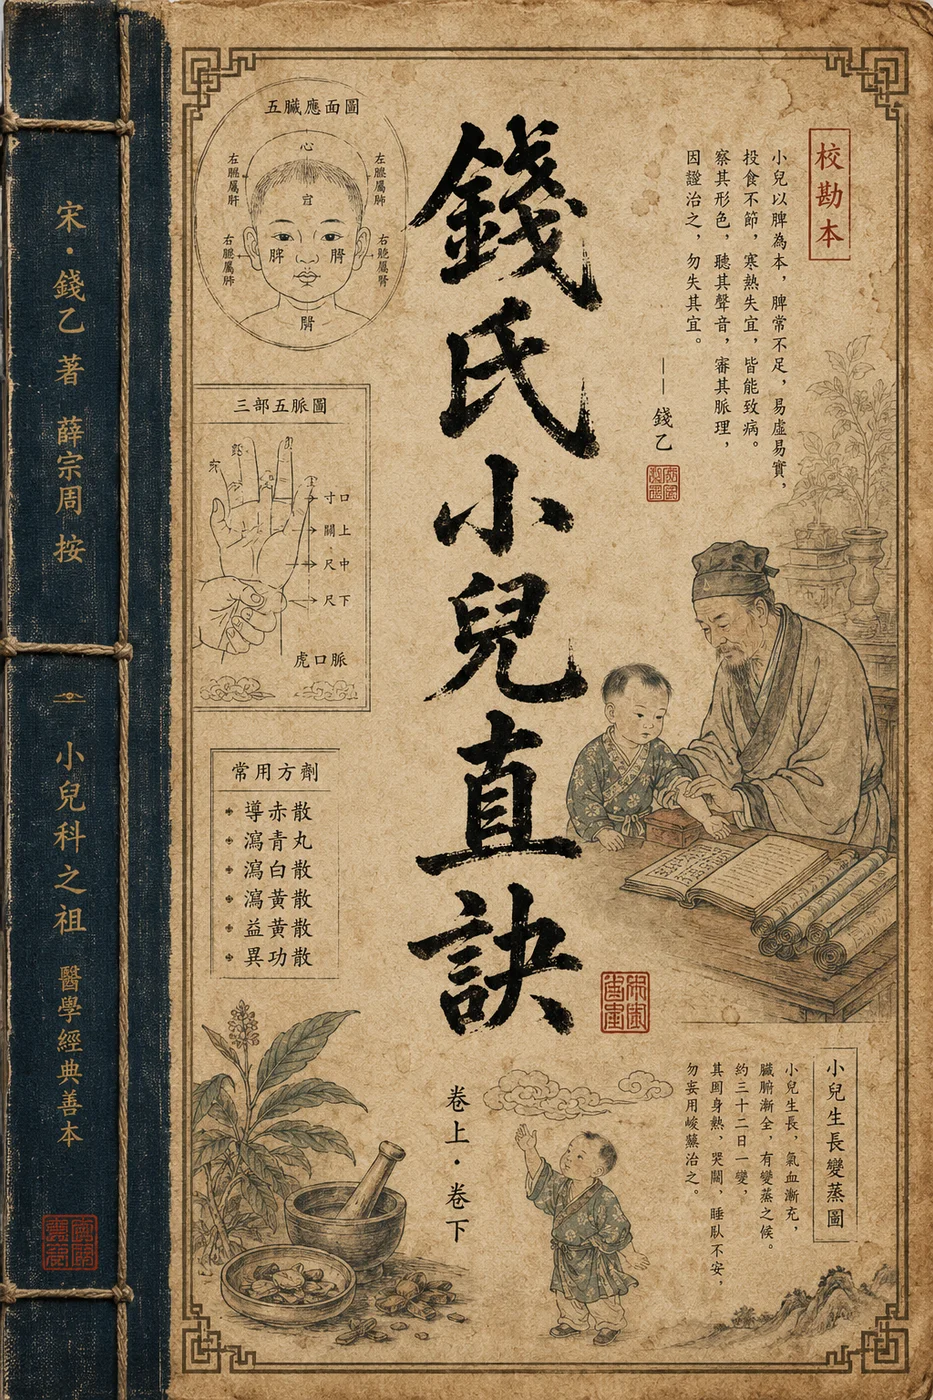 錢氏小兒直訣
卷上·卷下
校勘本
小兒以脾為本，脾常不足，易虛易實，
投食不節，寒熱失宜，皆能致病。
察其形色，聽其聲音，審其脈理，
因證治之，勿失其宜。
——錢乙
五臟應面圖
心
右腮屬肝
左腮屬肺
脾
三部五脈圖
寸口
關上
尺中
尺下
虎口脈
常用方劑
導赤散
瀉青丸
瀉白散
瀉黃散
益黃散
異功散
小兒生長變蒸圖
小兒生長，氣血漸充，
臟腑漸全，有變蒸之候。
約三十二日一變，
其周身熱，哭鬧，睡臥不安，
勿妄用峻藥治之。
宋·錢乙 著 薛宗周 按
小兒科之祖 醫學經典善本